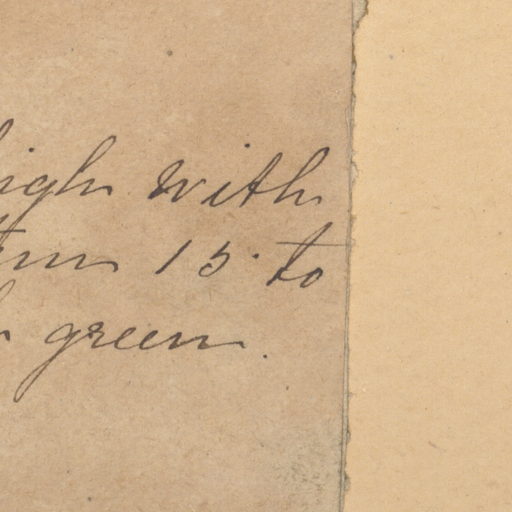 high with
15 to
green.